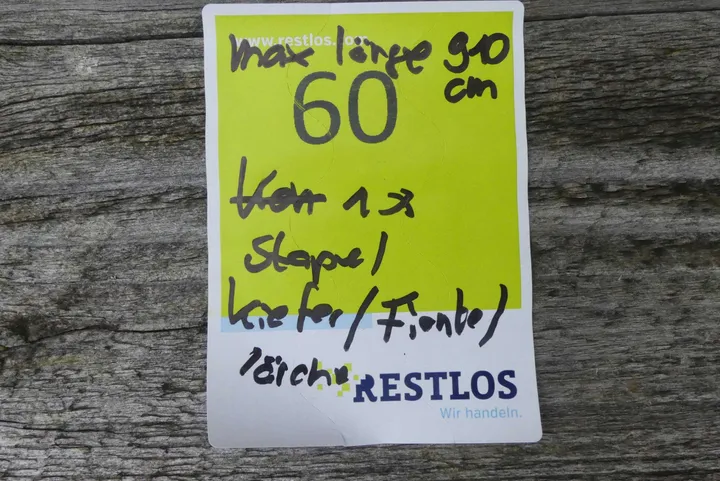 www.restlos.com
max länge 910
cm
60
1x
Stapel
Kiefer/Fichte/
lärche
RESTLOS
Wir handeln.